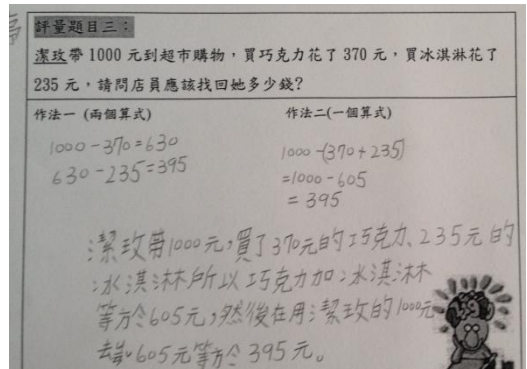 評量題目三：
潔玫帶 1000 元到超市購物，買巧克力花了 370 元，買冰淇淋花了
235 元，請問店員應該找回她多少錢？
作法一 (兩個算式)
作法二(一個算式)
1000-370=630
630-235=395
1000-(370+235)
=1000-605
=395
潔玫帶1000元，買了370元的巧克力、235元的
冰淇淋所以巧克力加冰淇淋
等於605元，然後在用潔玫的1000元
去減605元等於395元。